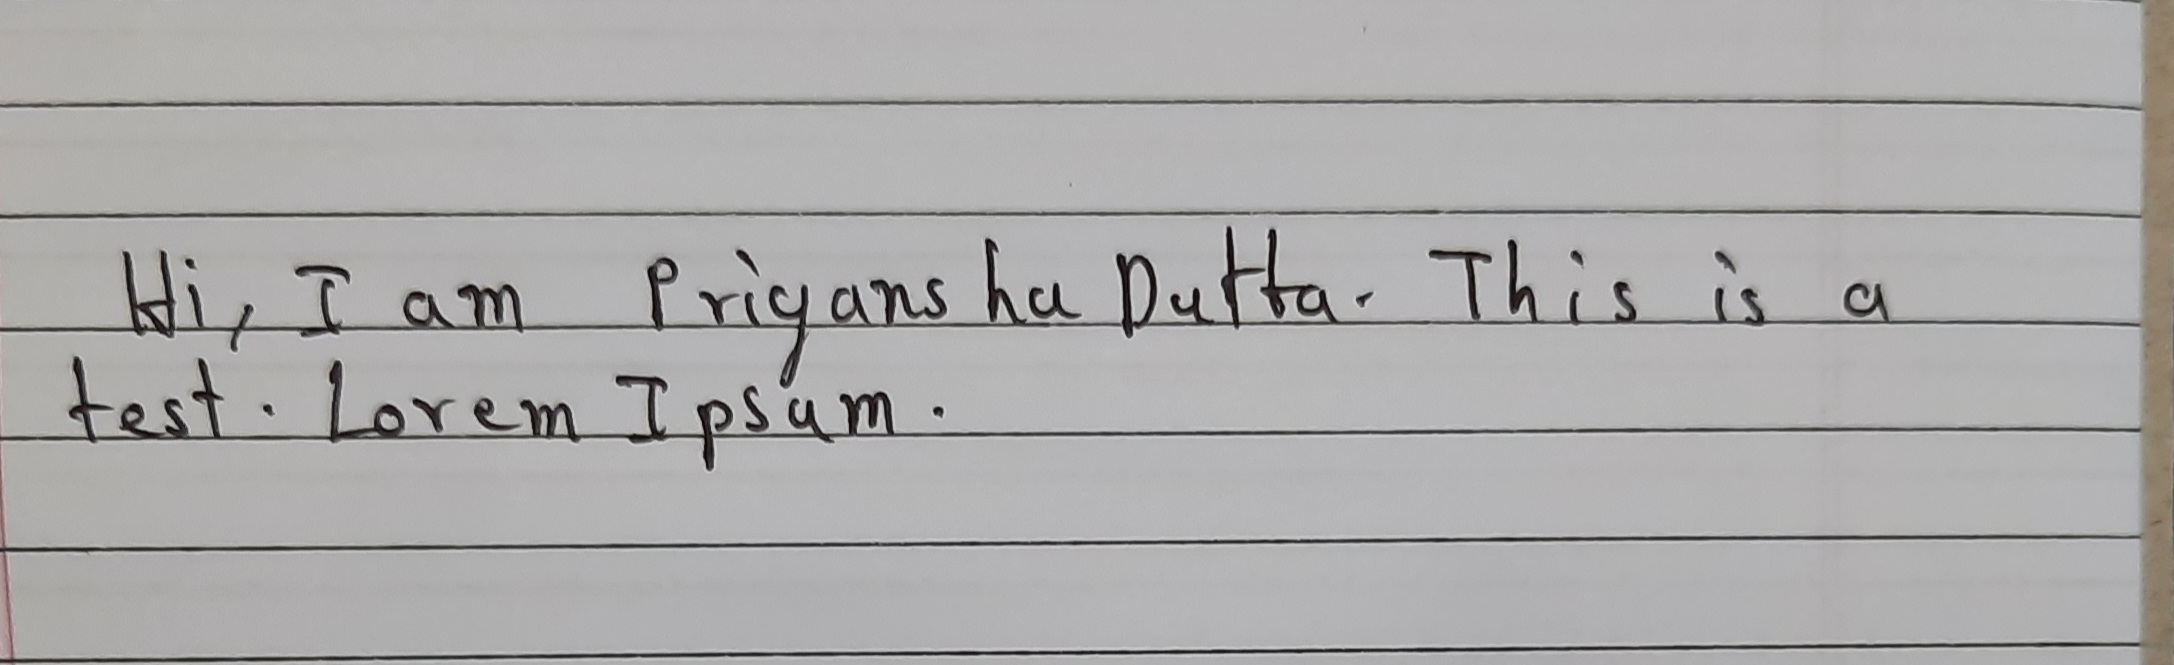 Hi, I am Priyansha Dutta. This is a
test. Lorem Ipsum.